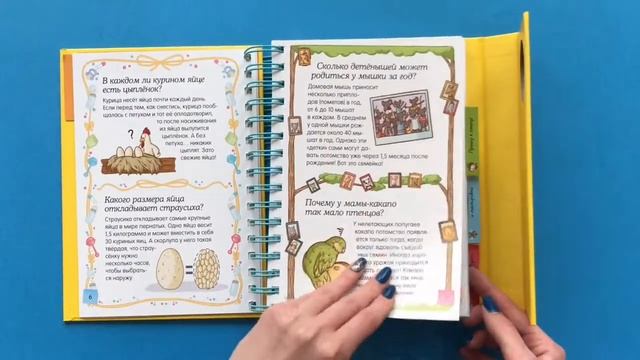 В каждом ли курином яйце
есть цыплёнок?
Курица несёт яйца почти каждый день.
Если перед тем, как снестись, курица пооб-
щалась с петухом и тот её оплодотворил,
то после насиживания
из яйца вылупится
цыплёнок. А без
петуха... никаких
цыплят. Зато
свежие яйца!
Какого размера яйца
откладывает страусиха?
Страусиха откладывает самые крупные
яйца в мире пернатых. Одно яйцо весит
1,5 килограмма и может вместить в себя
30 куриных яиц. А скорлупа у него такая
твёрдая, что страу-
сёнку нужно
несколько часов,
чтобы выбрать-
ся наружу.
6
Сколько детёнышей может
родиться у мышки за год?
Домовая мышь приносит
несколько припло-
дов (помётов) в год,
от 6 до 10 мышат
в каждом. В среднем
у одной мышки рож-
дается около 40 мы-
шат в год. Однако эти
«детки» сами могут да-
вать потомство уже через 1,5 месяца после
рождения! Вот это семейка!
Почему у мамы-какапо
так мало птенцов?
У нелетающих попугаев
какапо потомство появля-
ется только тогда, когда
вокруг вдоволь съедоб-
ных семян.